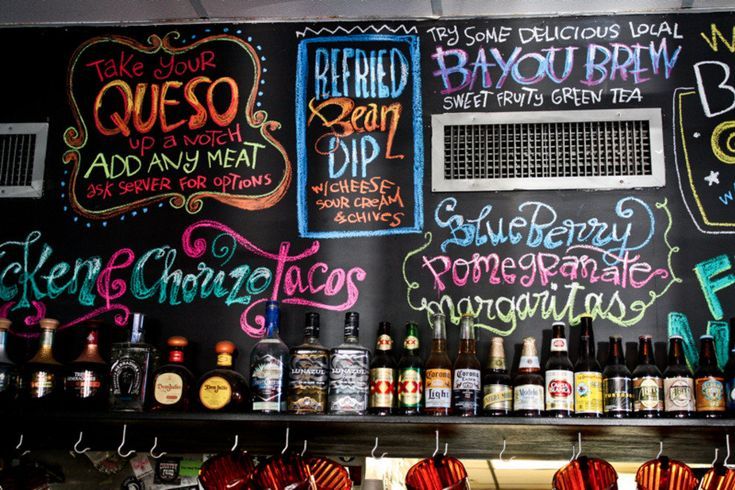 Take Your
QUESO
UP A NOTCH
ADD ANY MEAT
ASK SERVER FOR OPTIONS
REFRIED
Bean
DIP
W/CHEESE
SOUR CREAM
& CHIVES
TRY SOME DELICIOUS LOCAL
BAYOU BREW
SWEET FRUITY GREEN TEA
cken & Chorizo Tacos
BlueBerry
Pomegranate
margaritas
LUNAZUL
LUNAZUL
Don Julio
Don Julio
XX
XX
Corona
Light
Corona
Extra
Modelo